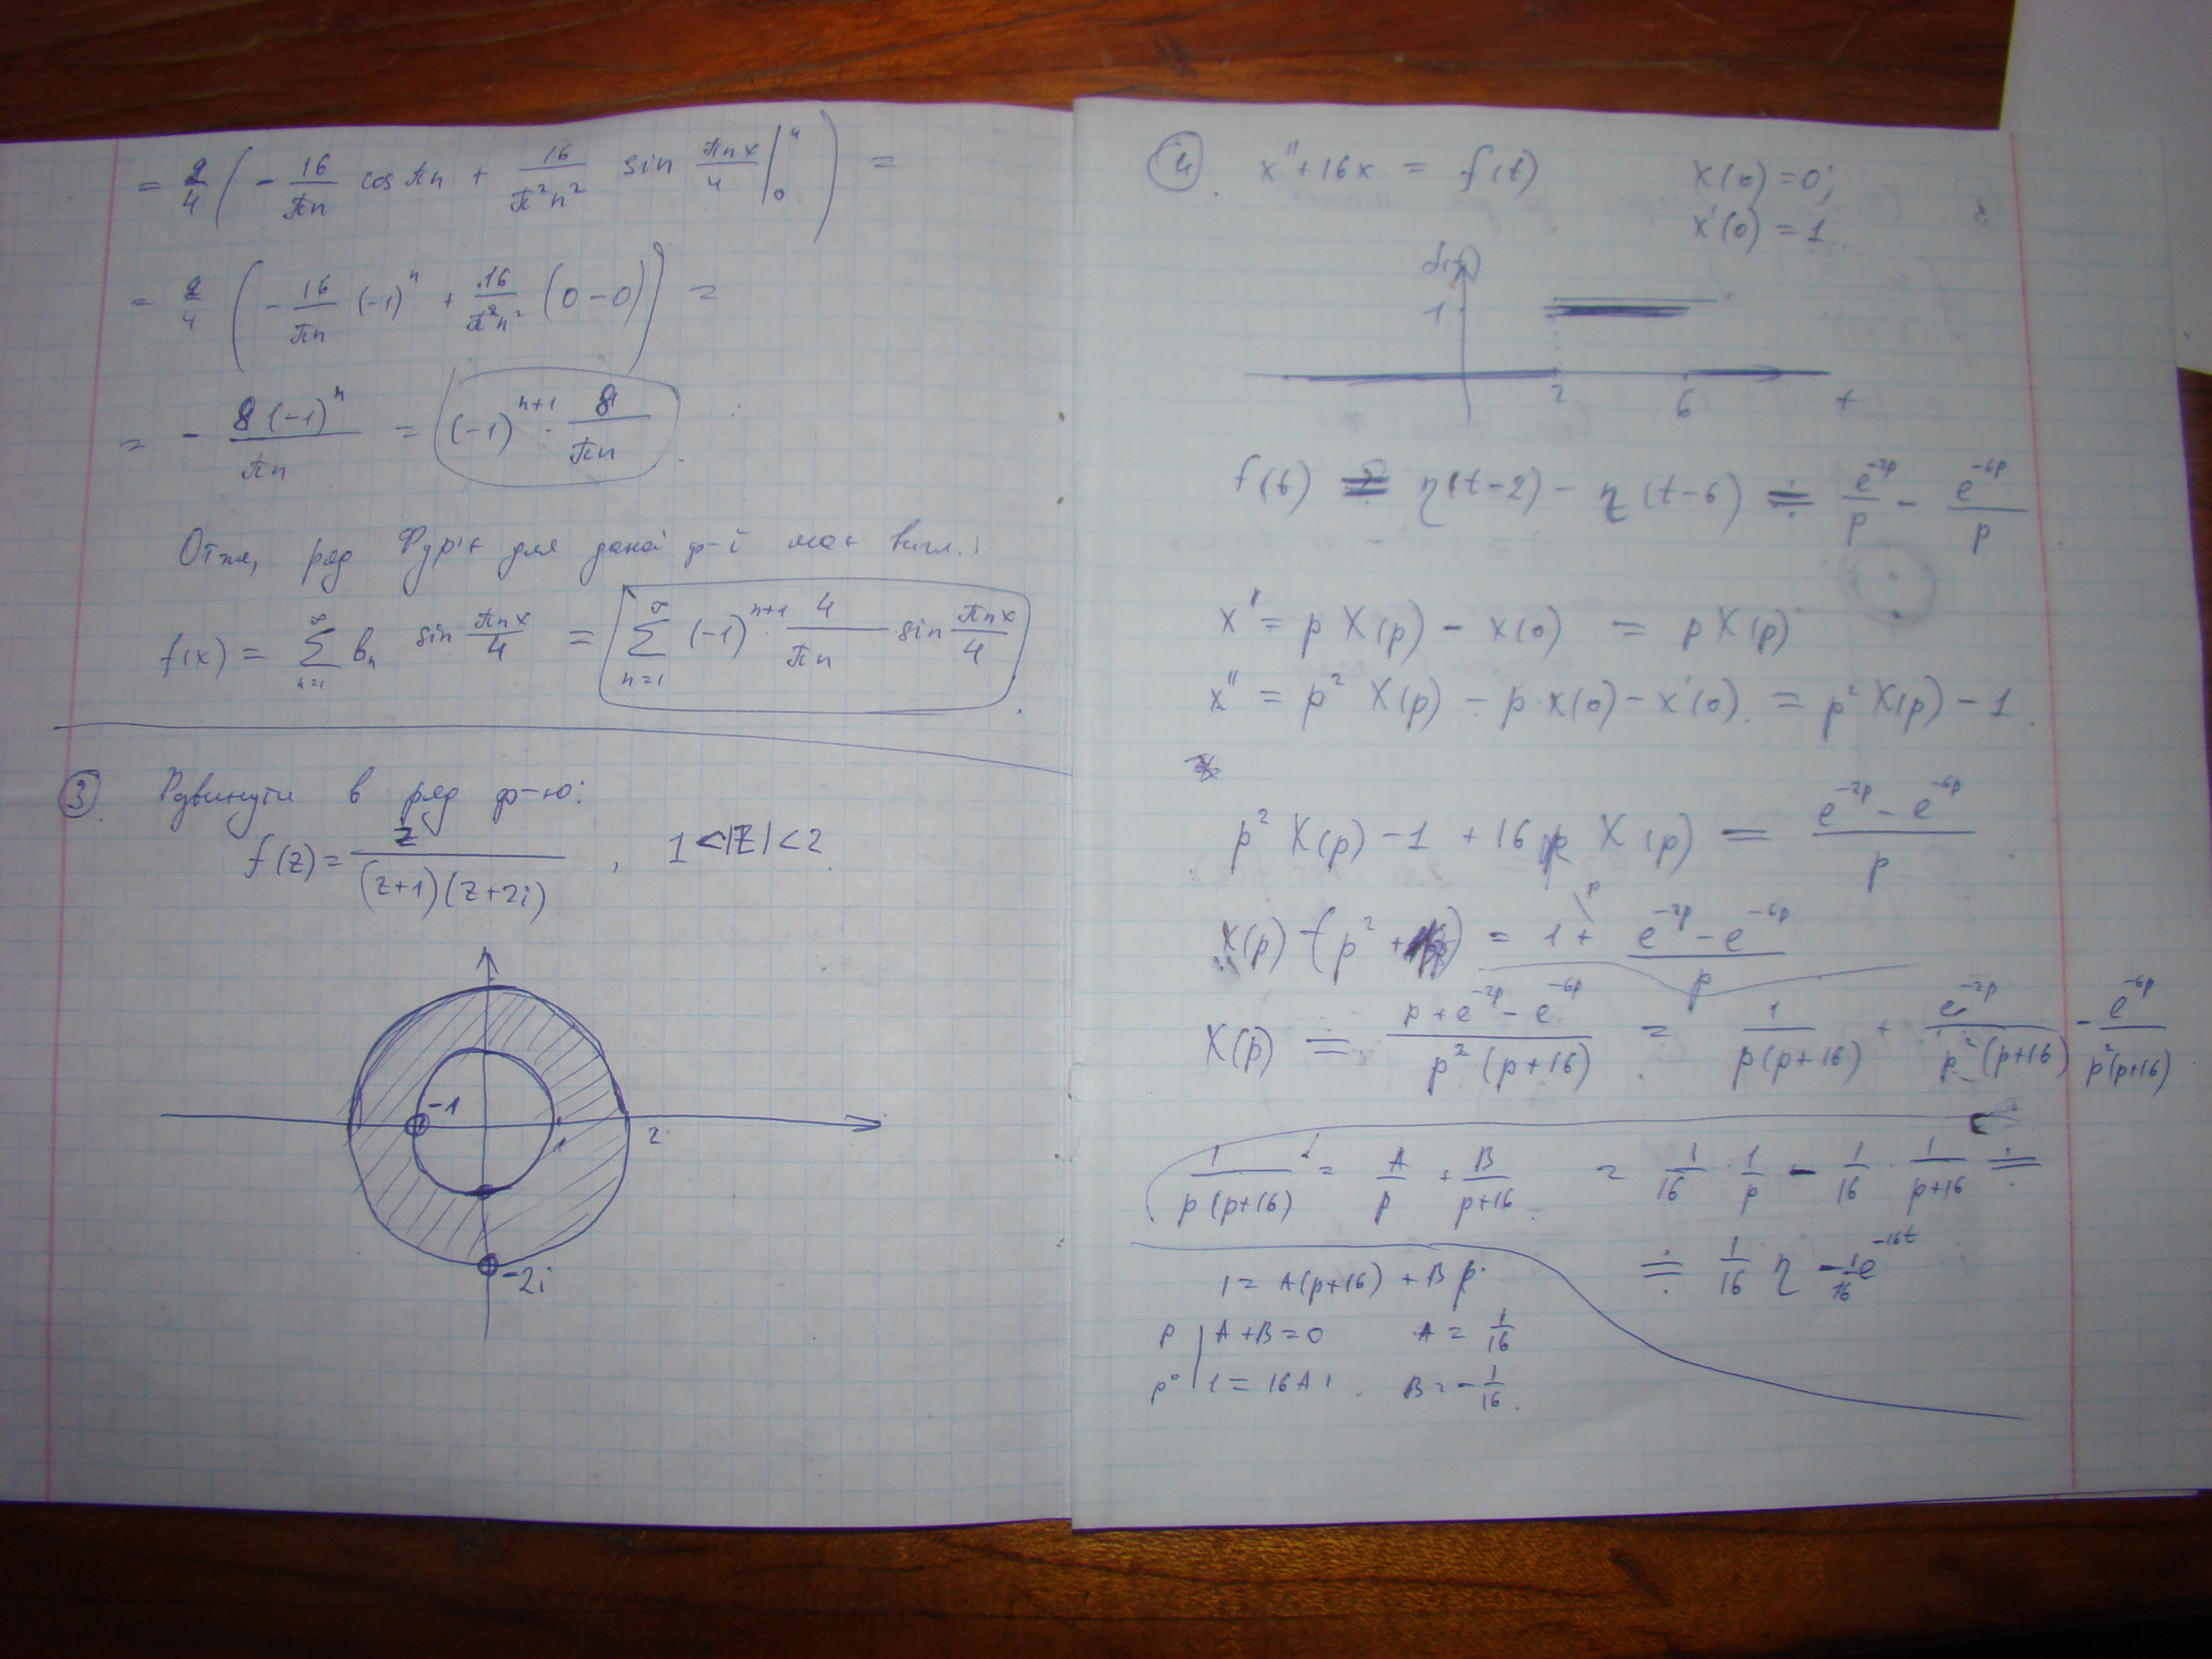 = 2/4 ( - 16/πn cos πn + 16/π²n² sin πnx/4 |₀⁴ ) =
= 2/4 ( - 16/πn (-1)ⁿ + 16/π²n² (0-0) ) =
= - 8(-1)ⁿ/πn = (-1)ⁿ⁺¹ · 8/πn .
Отже, ряд Фур'є для даної ф-ї має вигл.:
f(x) = ∑ₙ₌₁^∞ bₙ sin πnx/4 = ∑ₙ₌₁^∞ (-1)ⁿ⁺¹ 4/πn · sin πnx/4 .
3. Розвинути в ряд ф-ю:
f(z) = z/((z+1)(z+2i)) , 1<|z|<2
-1
1
2
-2i
4. x'' + 16x = f(t) x(0)=0;
x'(0)=1.
f(t)
1
2 6 t
f(t) ≑ η(t-2) - η(t-6) ≑ e^(-2p)/p - e^(-6p)/p
x' = p X(p) - x(0) = p X(p)
x'' = p² X(p) - p·x(0) - x'(0) = p² X(p) - 1.
p² X(p) - 1 + 16p X(p) = (e^(-2p) - e^(-6p))/p
X(p) (p² + 16p) = 1 + (e^(-2p) - e^(-6p))/p
X(p) ≑ (p + e^(-2p) - e^(-6p))/(p²(p+16)) = 1/(p(p+16)) + e^(-2p)/(p²(p+16)) - e^(-6p)/(p²(p+16))
1/(p(p+16)) = A/p + B/(p+16) = 1/16 · 1/p - 1/16 · 1/(p+16) ≑
≑ 1/16 η - 1/16 e^(-16t)
1 = A(p+16) + Bp
p | A+B=0 A = 1/16
p⁰ | 1 = 16A B = -1/16.